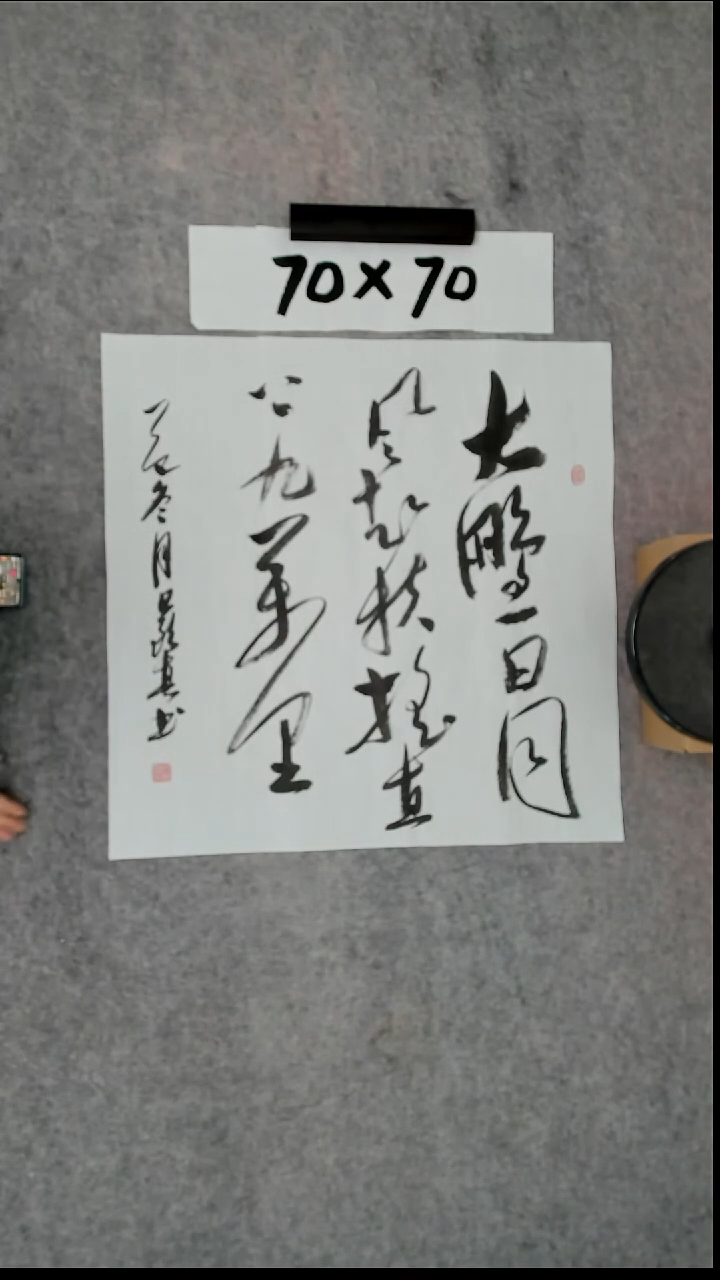 70×70
大鹏一日同
风起扶摇直
上九萬里
冬月 书